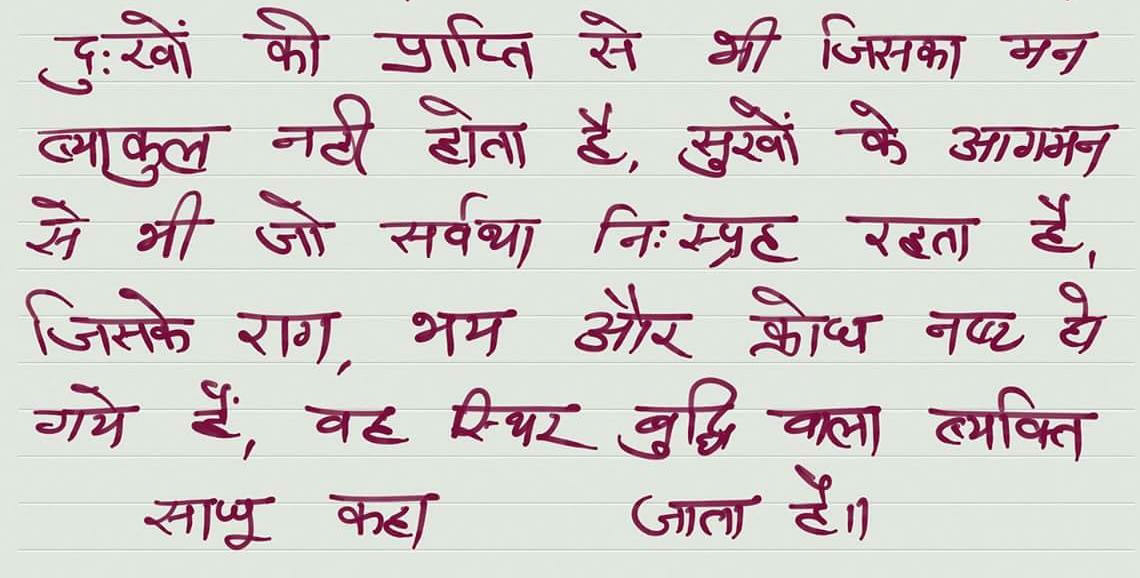 दुःखों की प्राप्ति से भी जिसका मन
व्याकुल नही होता है, सुखों के आगमन
से भी जो सर्वथा निःस्प्रह रहता है,
जिसके राग, भय और क्रोध नष्ट हो
गये हैं, वह स्थिर बुद्धि वाला व्यक्ति
साधु कहा जाता है॥